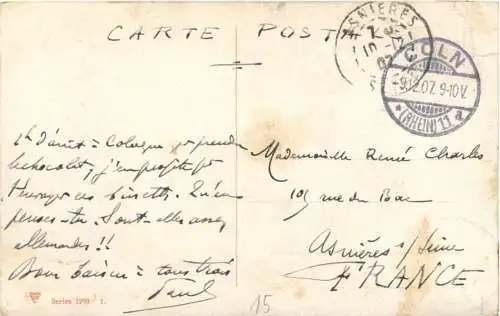 CARTE POSTALE
ASNIERES
CÖLN
9.12.07. 9-10V.
* (RHEIN) 11 d
1h d'arrêt = Cologne pr prendre
le chocolat, j'en profite pr
t'envoyer ces binettes. Qu'en
penses-tu. Sont-elles assez
allemandes !!
Bons baisers à tous trois
Paul
Mademoiselle Renée Charles
105 rue du Bac
Asnières s/Seine
FRANCE
Series 1990
15